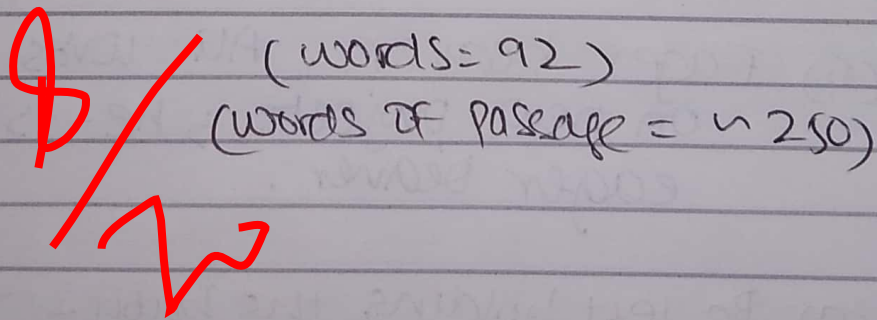 (words = 92)
(words of passage = ~ 250)